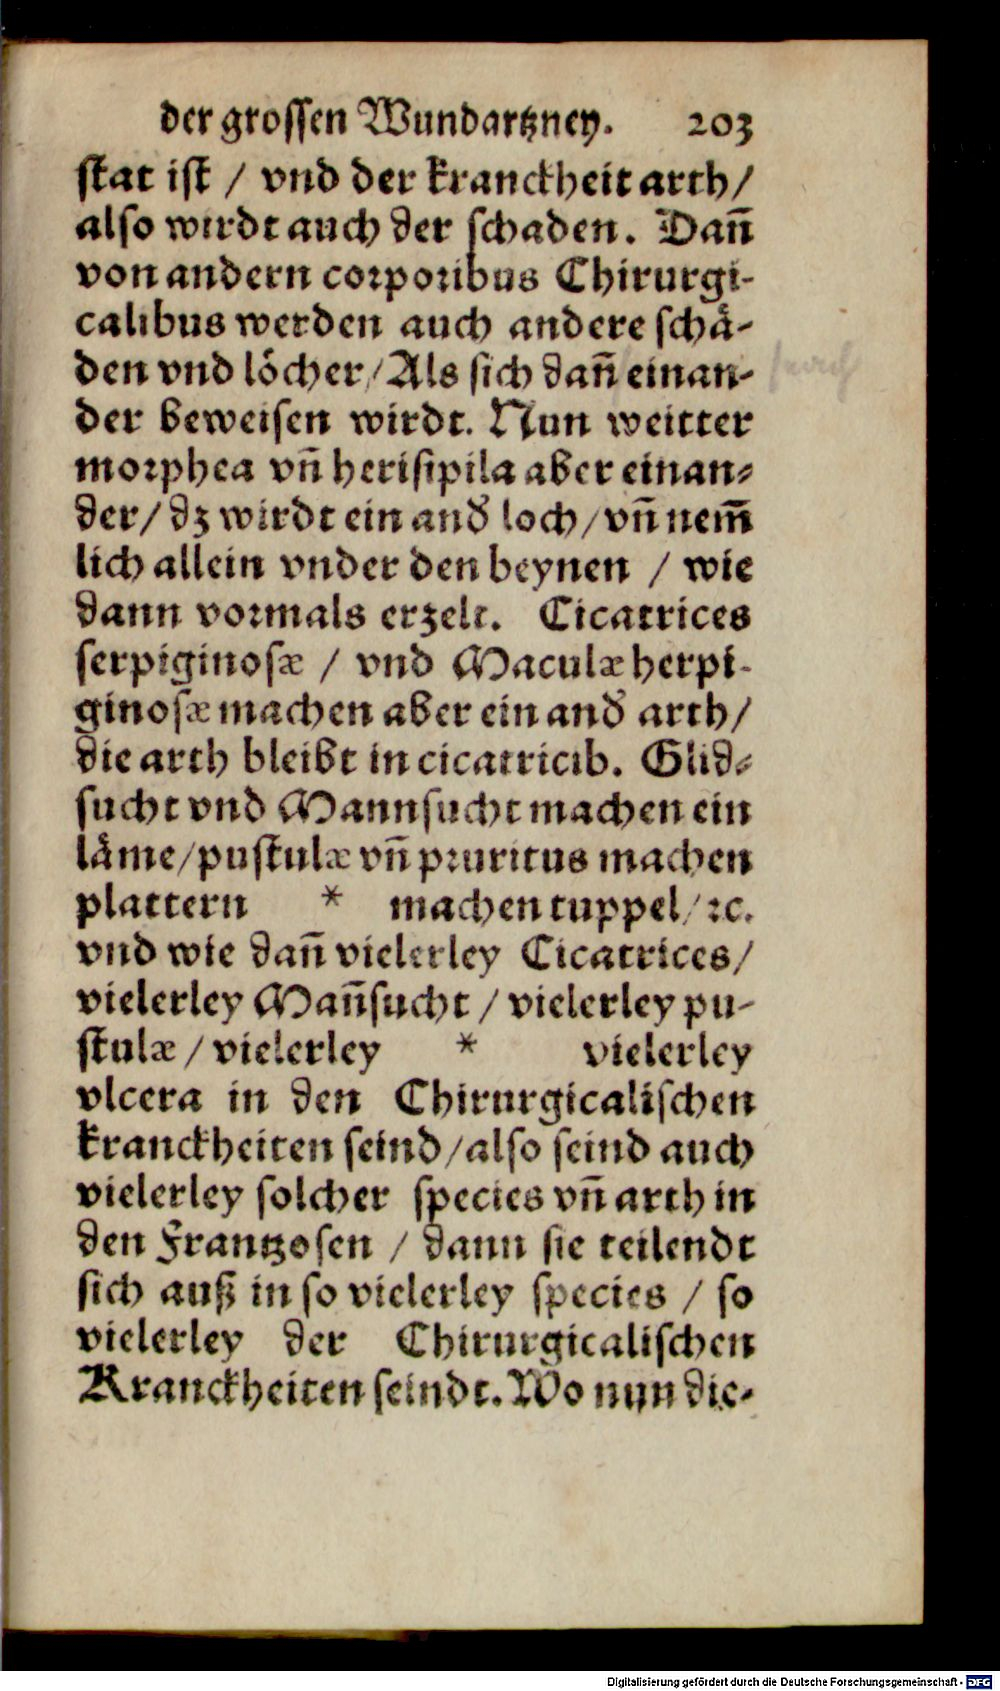 der grossen Wundartzney. 203
stat ist / vnd der kranckheit arth /
also wirdt auch der schaden. Dañ
von andern corporibus Chirurgi-
calibus werden auch andere schå-
den vnd löcher / Als sich dañ einan-
der beweisen wirdt. Nun weitter
morphea vñ herisipila aber einan-
der / dz wirdt ein and̕ loch / vñ nem̃
lich allein vnder den beynen / wie
dann vormals erzelt. Cicatrices
serpiginosæ / vnd Maculæ herpi-
ginosæ machen aber ein and̕ arth /
die arth bleibt in cicatricib. Glid-
sucht vnd Mannsucht machen ein
låme / pustulæ vñ pruritus machen
plattern * machen tuppel / ꝛc.
vnd wie dañ vielerley Cicatrices /
vielerley Mañsucht / vielerley pu-
stulæ / vielerley * vielerley
vlcera in den Chirurgicalischen
kranckheiten seind / also seind auch
vielerley solcher species vñ arth in
den Frantzosen / dann sie teilendt
sich auß in so vielerley species / so
vielerley der Chirurgicalischen
Kranckheiten seindt. Wo nun die-
Digitalisierung gefördert durch die Deutsche Forschungsgemeinschaft - DFG